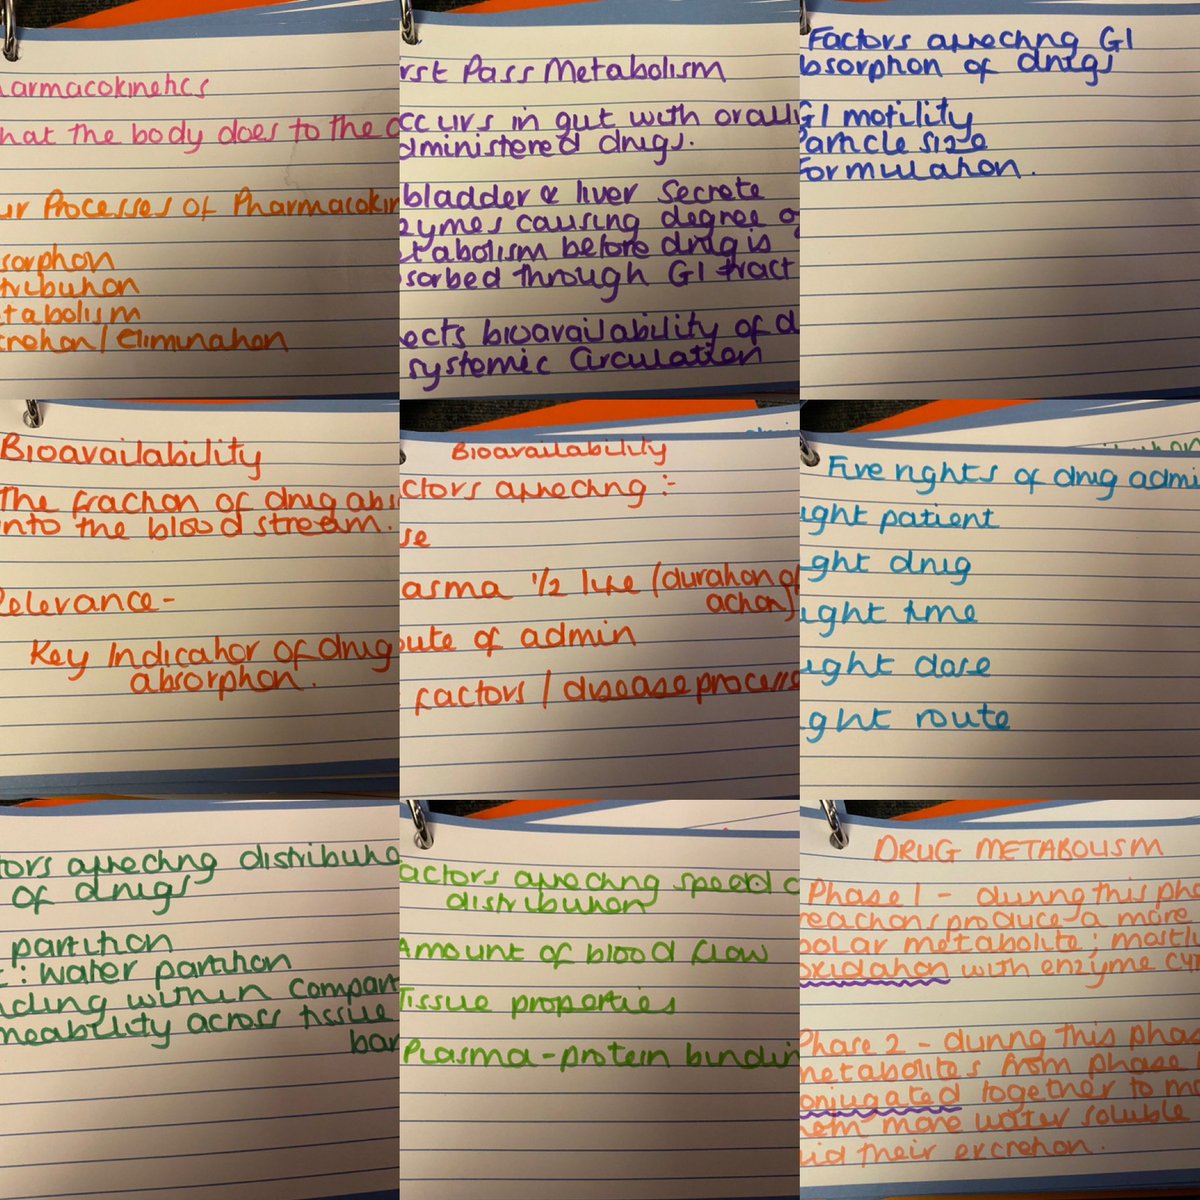 armacokinetics
hat the body does to the d
ur Processes of Pharmacokin
sorption
tribution
tabolism
cretion/Elimination
rst Pass Metabolism
ccurs in gut with orally
dministered drugs.
bladder & liver secrete
zymes causing degree o
tabolism before drug is
sorbed through GI tract
ects bioavailability of d
systemic circulation
Factors affecting GI
bsorption of drugs
GI motility
article size
ormulation.
Bioavailability
The fraction of drug abs
into the blood stream.
Relevance-
Key Indicator of drug
absorption.
Bioavailability
ctors affecting :-
se
asma 1/2 life (duration of
action)
oute of admin
factors / disease processe
Five rights of drug admi
ight patient
ght drug
ight time
ight dose
ght route
tors affecting distributio
of drugs
partition
t: water partition
nding within compart
meability across tissue
bar
actors affecting speed o
distribution
Amount of blood flow
Tissue properties
Plasma-protein bindin
DRUG METABOLISM
Phase 1 - during this pha
reactions produce a more
polar metabolite; mostly
oxidation with enzyme CYP
Phase 2 - during this phas
metabolites from phase
onjugated together to ma
hem more water soluble
aid their excretion.